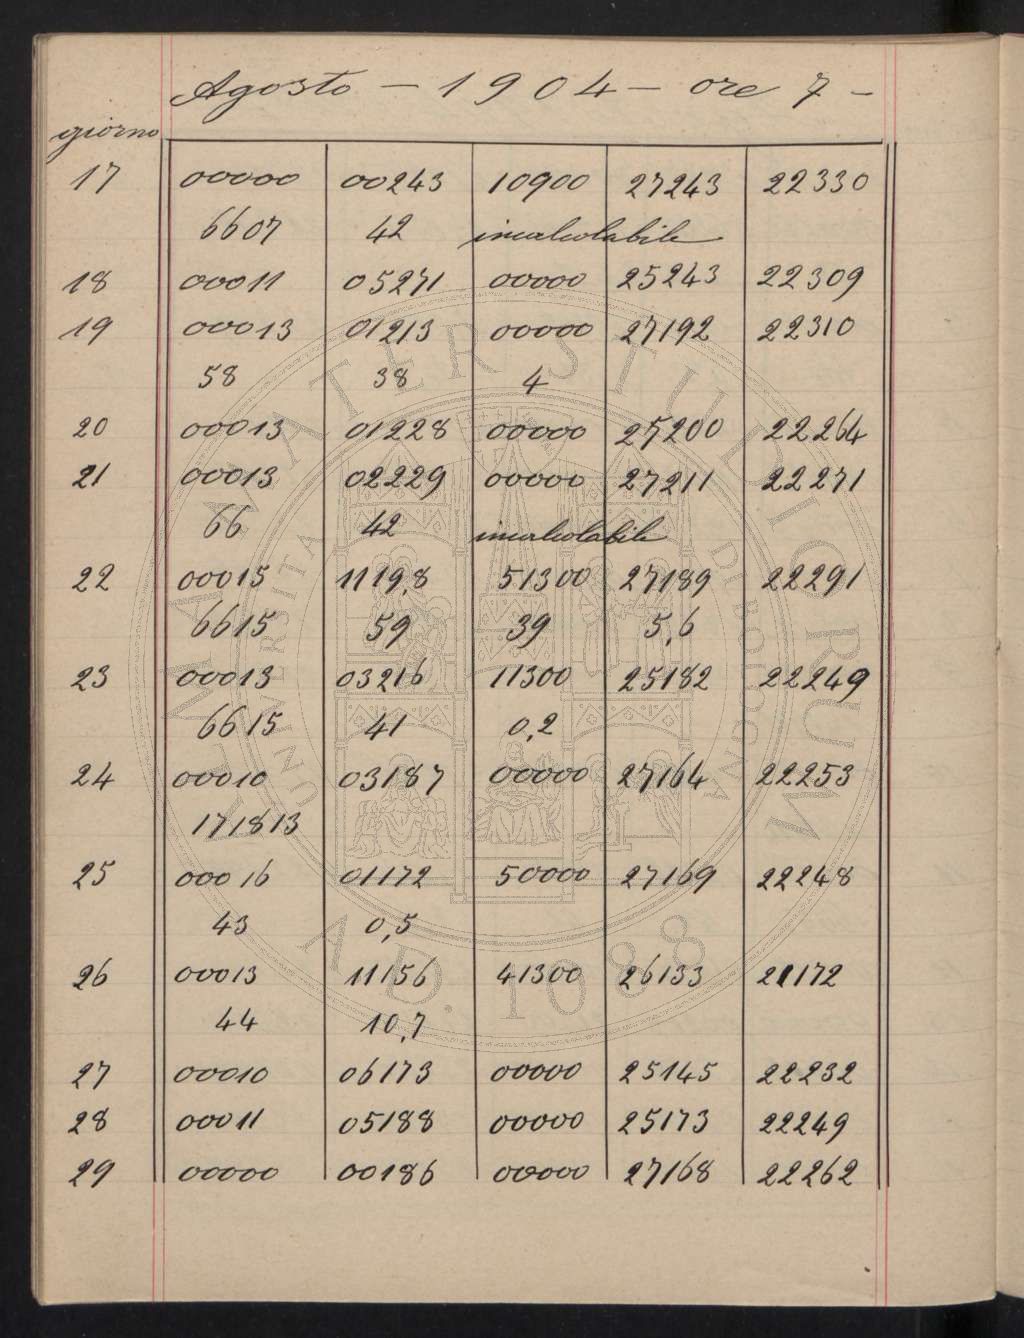 Agosto — 1904 — ore 7 —
giorno
17 00000 00243 10900 27243 22330
6607 42 incalcolabile
18 00011 05271 00000 25243 22309
19 00013 01213 00000 27192 22310
58 38 4
20 00013 01228 00000 27200 22264
21 00013 02229 00000 27211 22271
66 42 incalcolabile
22 00015 11198 51300 27189 22291
6615 59 39 5,6
23 00013 03216 11300 25182 22249
6615 41 0,2
24 00010 03187 00000 27164 22253
171813
25 00016 01172 50000 27169 22248
43 0,5
26 00013 11156 41300 26133 21172
44 10,7
27 00010 06173 00000 25145 22232
28 00011 05188 00000 25173 22249
29 00000 00186 00000 27168 22262
ALMA MATER STUDIORUM
UNIVERSITÀ DI BOLOGNA
A.D. 1088